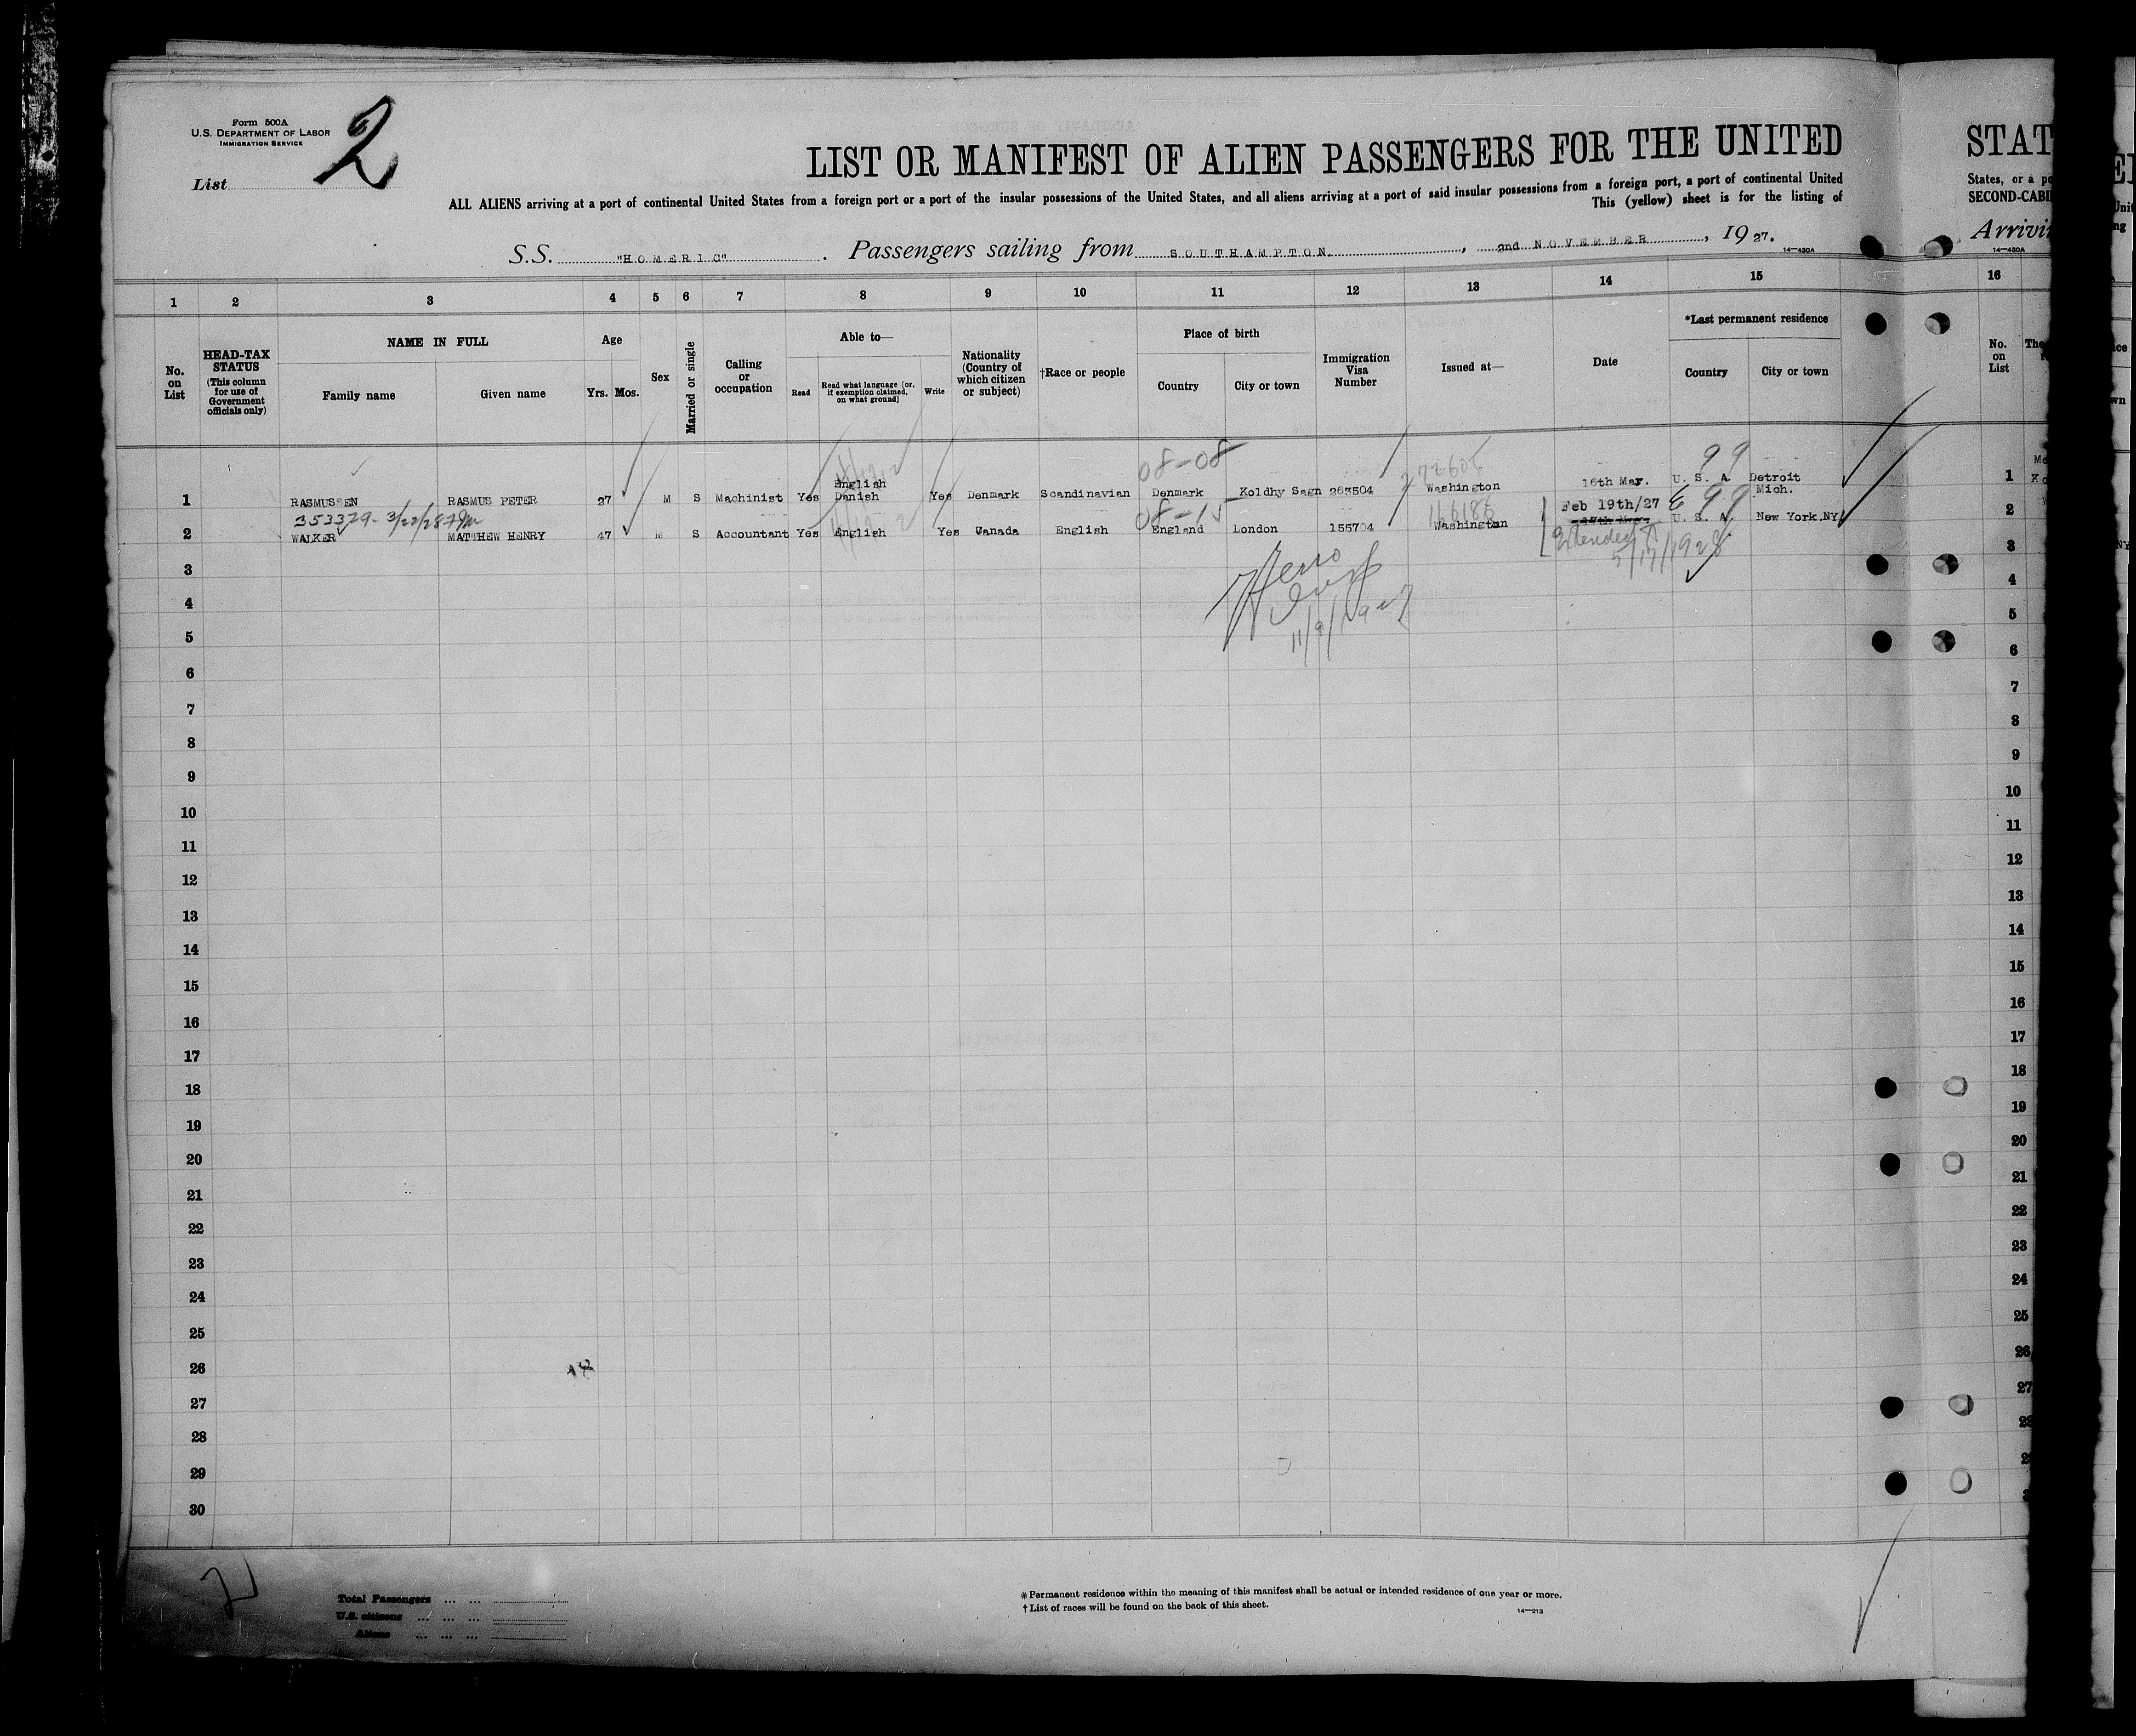 Form 500A
U.S. DEPARTMENT OF LABOR
IMMIGRATION SERVICE
2
List
LIST OR MANIFEST OF ALIEN PASSENGERS FOR THE UNITED
ALL ALIENS arriving at a port of continental United States from a foreign port or a port of the insular possessions of the United States, and all aliens arriving at a port of said insular possessions from a foreign port, a port of continental United
This (yellow) sheet is for the listing of
S.S. "HOMERIC". Passengers sailing from SOUTHAMPTON, 2nd NOVEMBER, 1927.
14—430A
STAT
States, or a po
SECOND-CABI
Arrivi
14—430A
1 2 3 4 5 6 7 8 9 10 11 12 13 14 15 16
No. on List
HEAD-TAX STATUS (This column for use of Government officials only)
NAME IN FULL
Family name
Given name
Age
Yrs. Mos.
Sex
Married or single
Calling or occupation
Able to—
Read
Read what language [or, if exemption claimed, on what ground]
Write
Nationality (Country of which citizen or subject)
†Race or people
Place of birth
Country
City or town
Immigration Visa Number
Issued at—
Date
*Last permanent residence
Country
City or town
No. on List
08-08
99
1 RASMUSSEN RASMUS PETER 27 M S Machinist Yes English Danish Yes Denmark Scandinavian Denmark Koldhy Sagn 263504 Washington 16th May. U. S. A. Detroit Mich. 1
353379- 3/22/28
08-15
116186
Feb 19th/27
99
2 WALKER MATTHEW HENRY 47 M S Accountant Yes English Yes Canada English England London 155704 Washington 17th May. U. S. A. New York.NY 2
Extended to
5/17/1928
11/9/1927
3 3
4 4
5 5
6 6
7 7
8 8
9 9
10 10
11 11
12 12
13 13
14 14
15 15
16 16
17 17
18 18
19 19
20 20
21 21
22 22
23 23
24 24
25 25
26 26
27 27
28
29
30
2
Total Passengers ... ...
U.S. citizens ... ... ...
Aliens ... ... ...
*Permanent residence within the meaning of this manifest shall be actual or intended residence of one year or more.
†List of races will be found on the back of this sheet.
14—213